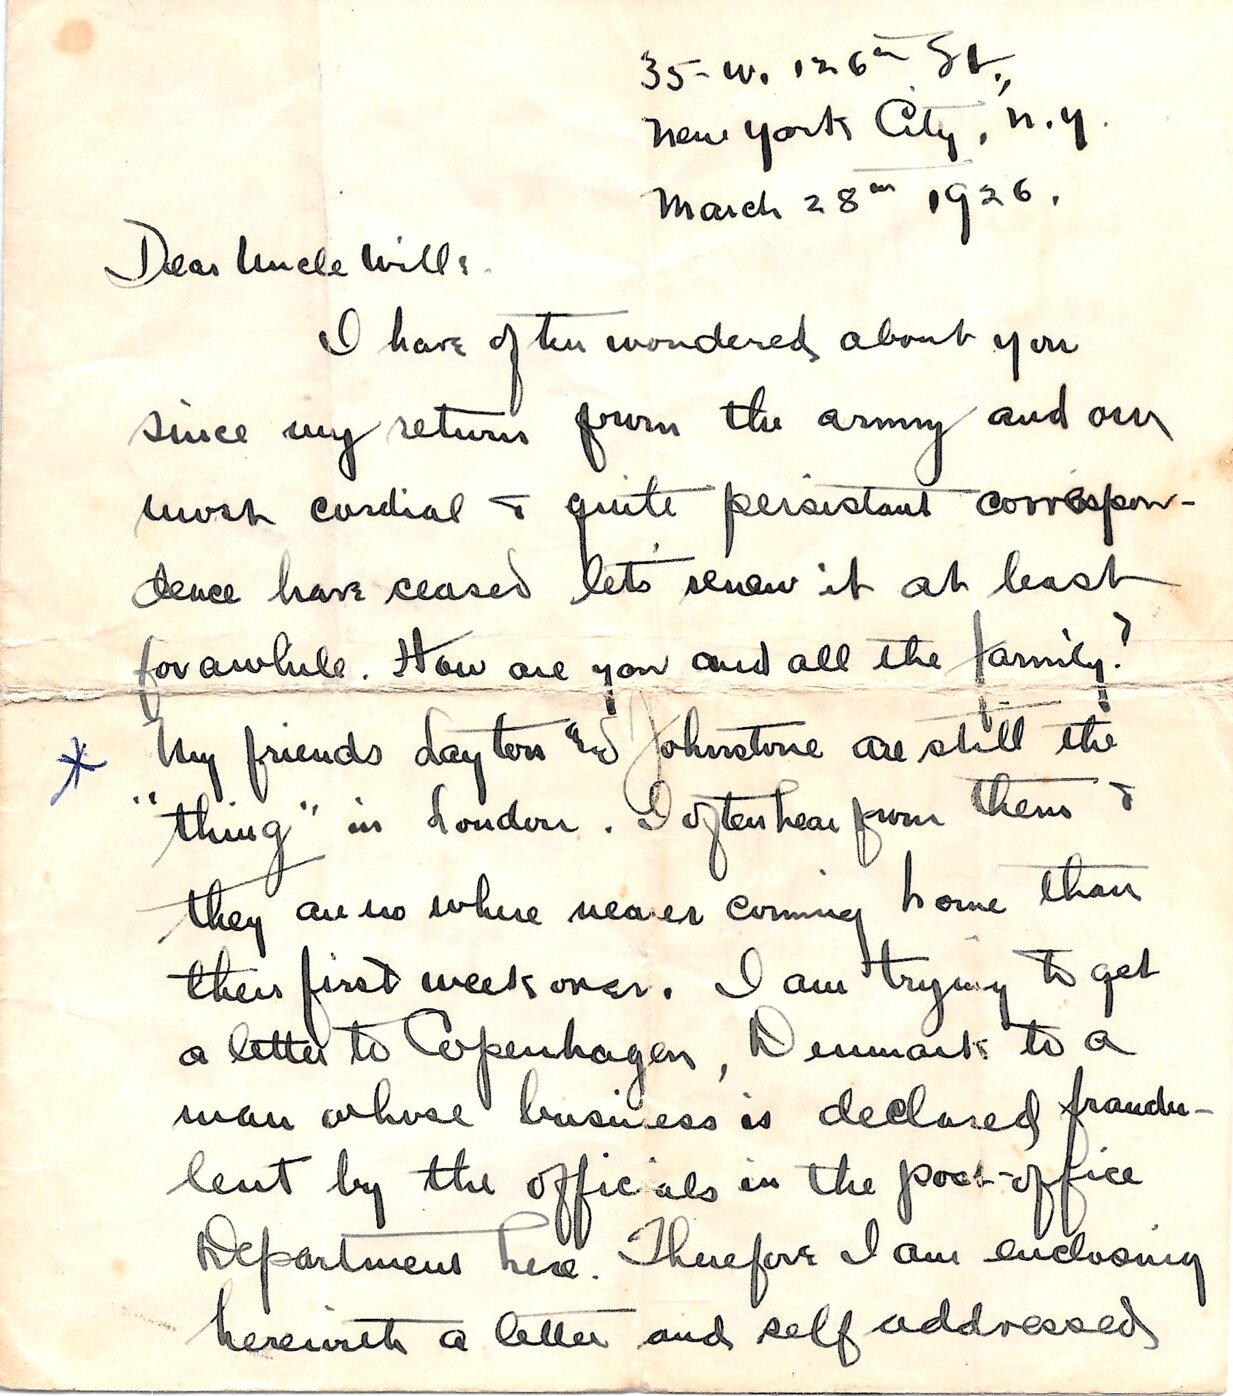 35- W. 126th St.,
New York City, N.Y.
March 28th 1926.
Dear Uncle Will:
I have often wondered about you
since my return from the army and our
most cordial & quite persistant correspon-
dence have ceased let's renew it at least
for awhile. How are you and all the family?
My friends Layton and Johnstone are still the
"thing" in London. I often hear from them &
they are no where nearer coming home than
their first week over. I am trying to get
a letter to Copenhagen, Denmark to a
man whose business is declared fraudu-
lent by the officials in the post-office
Department here. Therefore I am enclosing
herewith a letter and self addressed